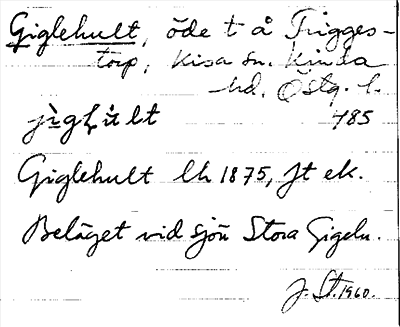 Giglehult, öde t å Trigges-
torp, Kisa sn. Kinda
hd. Östg. l.
jìgḷùlt 485
Giglehult lh 1875, Jt ek.
Beläget vid sjön Stora Gigeln.
J. St. 1960.